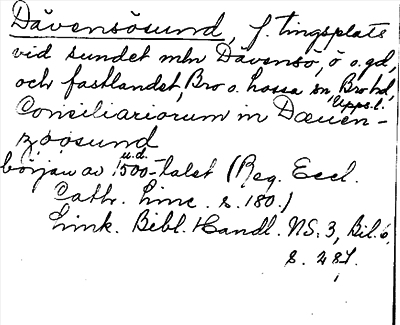 Dävensösund, f. tingsplats
vid sundet mln Dävensö, ö o. gd,
och fastlandet, Bro o. Lossa sn, Bro hd,
Upps. l.
Consiliariorum in Dæuen-
zøøsund
början av 1500-talet (Reg. Eccl.
u.d.
Cath. Linc. s. 180.)
Link. Bibl. Handl. NS. 3, Bil. 6,